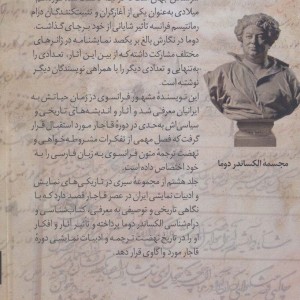 میلادی به‌عنوان یکی از آغازگران و تثبیت‌کنندگان درام
رمانتیسم فرانسه تأثیر شایانی از خود بر جای گذاشت.
دوما در نگارش بالغ بر یکصد نمایشنامه در ژانرهای
مختلف مشارکت داشته که از بین این آثار، تعدادی را
به‌تنهایی و تعدادی دیگر را با همراهی نویسندگان دیگر
نوشته است.
این نویسندهٔ مشهور فرانسوی در زمان حیاتش به
ایرانیان معرفی شد و آثار و اندیشه‌های تاریخی و
سیاسی‌اش به‌حدی در دورهٔ قاجار مورد استقبال قرار
گرفت که فصل مهمی از تفکرات مشروطه‌خواهی و
نهضت ترجمهٔ متون فرانسوی به زبان فارسی را به
خود اختصاص داده است.
جلد هشتم از مجموعهٔ سیری در تاریکی‌های نمایشی
و ادبیات نمایشی ایران در عصر قاجار قصد دارد که با
نگاهی تاریخی و توصیفی به معرفی، کتابشناسی و
درام‌شناسی الکساندر دوما پرداخته و تأثیر آثار و افکار
او را در تاریخ نهضت ترجمه و ادبیات نمایشی دورهٔ
قاجار مورد واکاوی قرار دهد.
مجسمه الکساندر دوما